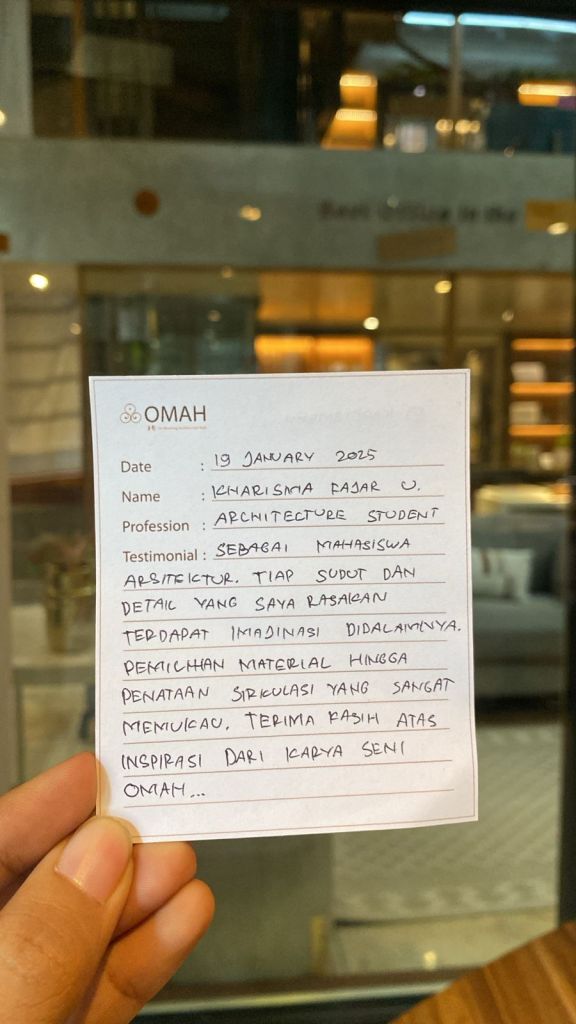 Best Office in the
OMAH
Date : 19 JANUARY 2025
Name : KHARISMA FAJAR U.
Profession : ARCHITECTURE STUDENT
Testimonial : SEBAGAI MAHASISWA
ARSITEKTUR. TIAP SUDUT DAN
DETAIL YANG SAYA RASAKAN
TERDAPAT IMAJINASI DIDALAMNYA.
PEMILIHAN MATERIAL HINGGA
PENATAAN SIRKULASI YANG SANGAT
MEMUKAU. TERIMA KASIH ATAS
INSPIRASI DARI KARYA SENI
OMAH...